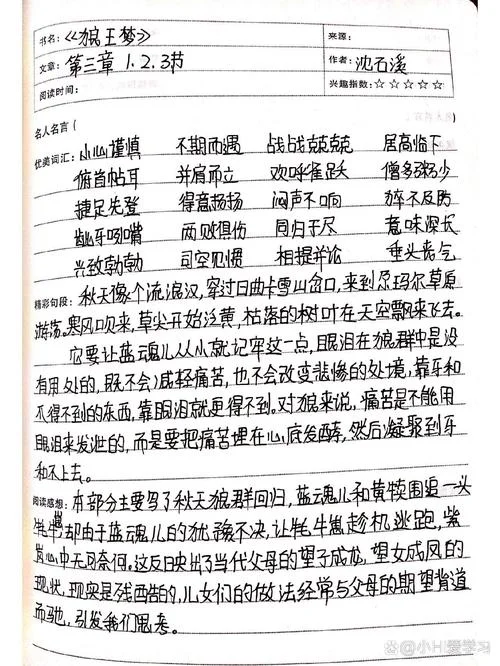 书名：《狼王梦》 来源：
文章：第三章 1.2.3节 作者：沈石溪
阅读时间： 兴趣指数：☆☆☆☆☆
名人名言(
优美词汇：小心谨慎 不期而遇 战战兢兢 居高临下
俯首帖耳 并肩而立 欢呼雀跃 僧多粥少
捷足先登 得意扬扬 闷声不响 猝不及防
龇牙咧嘴 两败俱伤 同归于尽 意味深长
兴致勃勃 司空见惯 相提并论 垂头丧气
精彩句段：秋天像个流浪汉，穿过日曲卡雪山岔口，来到尕玛尔草原
游荡。寒风吹来，草尖开始泛黄，枯落的树叶在天空飘来飞去。
它要让蓝魂儿从小就记牢这一点，眼泪在狼群中是没
有用处的，既不会减轻痛苦，也不会改变悲惨的处境，靠牙和
爪得不到的东西，靠眼泪就更得不到。对狼来说，痛苦是不能用
眼泪来发泄的，而是要把痛苦埋在心底发酵，然后凝聚到牙
和爪上去。
阅读感想：本部分主要写了秋天狼群回归，蓝魂儿和黄犊围追一头
牦牛崽却由于蓝魂儿的犹豫不决，让牦牛崽趁机逃跑，紫
岚心中无可奈何。这反映出了当代父母的望子成龙，望女成凤的
现状，现实是残酷的，儿女们的做法经常与父母的期望背道
而驰，引发我们思考。
@小H爱学习